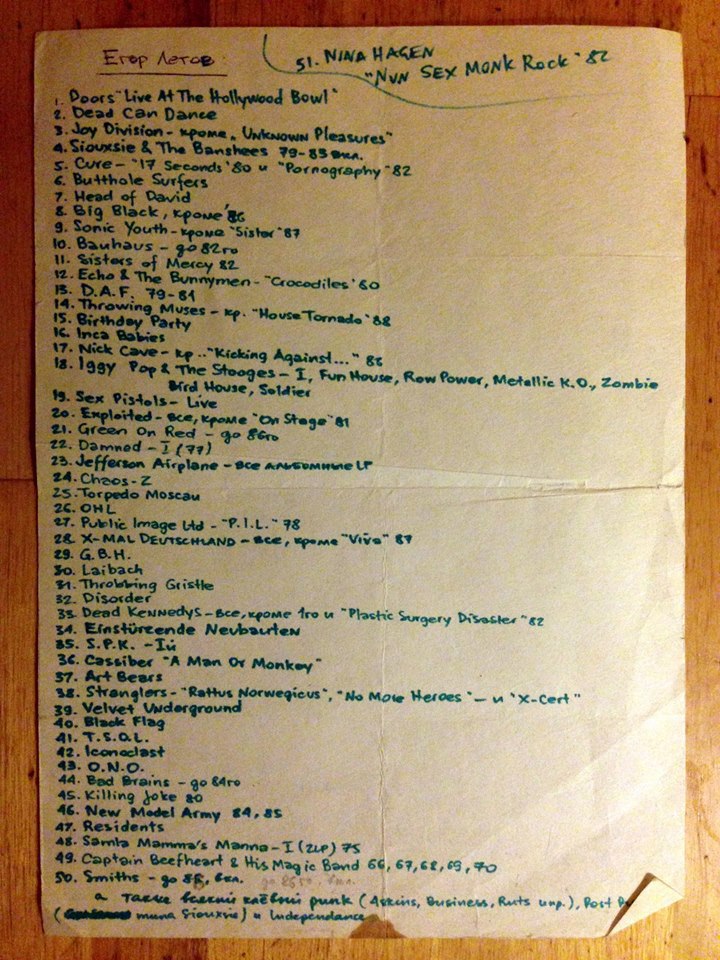 Егор Летов:
51. NINA HAGEN
"NUN SEX MONK Rock" 82
1. Doors "Live At The Hollywood Bowl"
2. Dead Can Dance
3. Joy Division - кроме "UNKNOWN Pleasures"
4. Siouxsie & The Banshees 79-83 вкл.
5. Cure - "17 Seconds" 80 и "Pornography" 82
6. Butthole Surfers
7. Head of David
8. Big Black, кроме 86
9. Sonic Youth - кроме "Sister" 87
10. Bauhaus - до 82го
11. Sisters of Mercy 82
12. Echo & The Bunnymen - "Crocodiles" 80
13. D.A.F. 79-81
14. Throwing Muses - кр. "House Tornado" 88
15. Birthday Party
16. Inca Babies
17. Nick Cave - кр.. "Kicking Against..." 86
18. Iggy Pop & The Stooges - I, Fun House, Row Power, Metallic K.O., Zombie
Bird House, Soldier
19. Sex Pistols - Live
20. Exploited - все, кроме "On Stage" 81
21. Green On Red - до 86го
22. Damned - I (77)
23. Jefferson Airplane - все альбомные LP
24. Chaos-Z
25. Torpedo Moscau
26. OHL
27. Public Image Ltd - "P.I.L." 78
28. X-MAL DEUTSCHLAND - все, кроме "Viva" 87
29. G.B.H.
30. Laibach
31. Throbbing Gristle
32. Disorder
33. Dead Kennedys - все, кроме 1го и "Plastic Surgery Disaster" 82
34. Einstürzende Neubauten
35. S.P.K. - Iй
36. Cassiber "A Man Or Monkey"
37. Art Bears
38. Stranglers - "Rattus Norwegicus", "No More Heroes" - и "X-Cert"
39. Velvet Underground
40. Black Flag
41. T.S.O.L.
42. Iconoclast
43. O.N.O.
44. Bad Brains - до 84го
45. Killing Joke 80
46. New Model Army 84, 85
47. Residents
48. Samla Mamma's Manna - I (2LP) 75
49. Captain Beefheart & His Magic Band 66, 67, 68, 69, 70
50. Smiths - до 85, вкл.
а также всякий клёвый punk (Askins, Business, Ruts и пр.), Post
( типа Siouxsie) и Independance